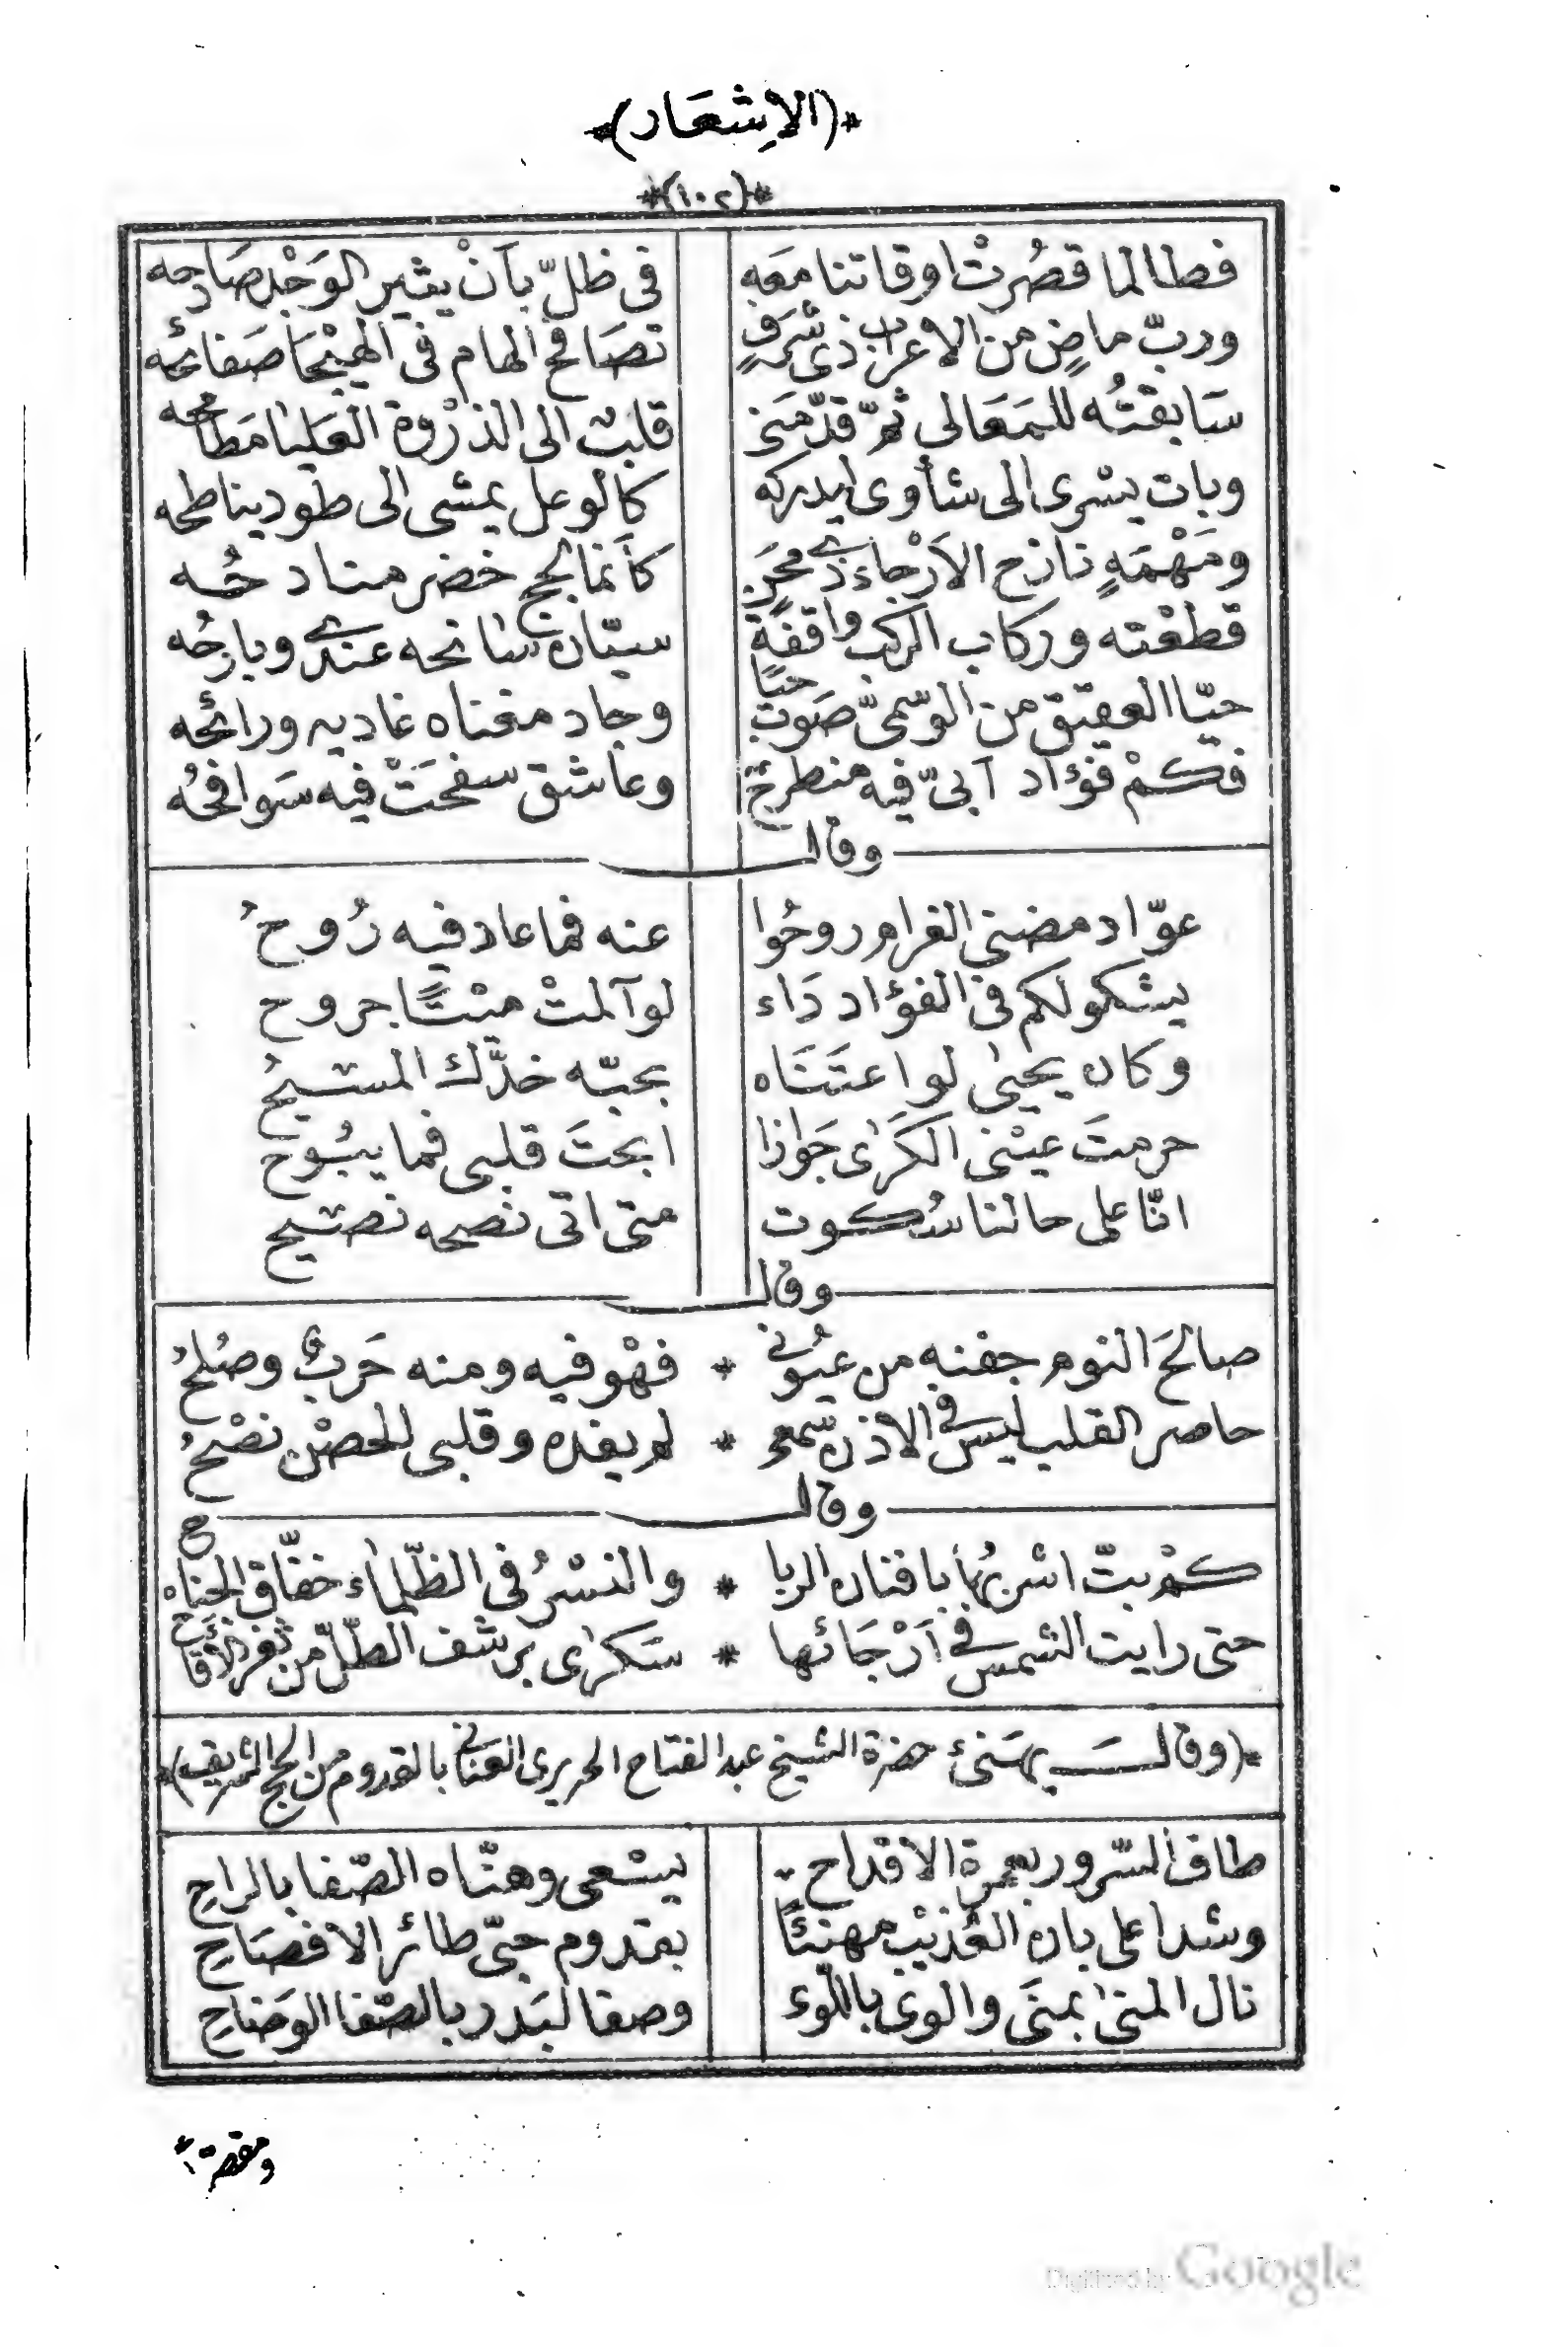 *(الاِشعَار)*
*(١٠٢)*
فطالما قصُرتْ اوقاتنا مَعَه فى ظلّ بآنْ يثير الوَجْد صَادِحه
وربّ ماضٍ من الاعراب ذى شرَفٍ تصَافح الهام فى الهيْجَا صَفائحُه
سَابقتُه للمَعَالى ثمّ قدّمَنى قلبٌ الى الذرْوة العَليٰا مَطامحُه
وبات يسْرى الى شأوى ليدركه كالوعل يمشى الى طود يناطحه
ومَهْمَهٍ نازح الاَرْجاء ذى محَنٍ كأنما لجج خضر
قطعْته وركاب الركب واقفةٌ سيّان سٰانحه عندى وبارحُه
حيّا العقيق من الوسمىّ صَوبُ حيًا وجاد مغناه غاديه ورائحُه
فكمْ فؤاد آبىّ فيه منطرحٌ وعاشق سفحَتْ فيه سَوافحُه
وقال
عوّاد مضنى الغرام روحُوا عنه فما عاد فيه رُوحُ
يشكو لكم فى الفؤاد دَاء لو آلمتْ ميْتًا جروح
وكان يحيىٰ لو اعتَنَاه بحبّه خدّك المسيحُ
حرمتَ عيْنى الكَرٰى جَوٰازا ابحتَ قلبى فما يبُوح
انّا على حالنا سُكوت متى اتى نصحه نصيح
وقال
صالحَ النوم جفنه من عيُونى * فهْو فيه ومنه حَربٌ وصُلحُ
حاصر القلب ليس فى الاذن سمع * لم يفده وقلبى للحصْن نصْحُ
وقال
كم بتّ اشربُها بافنان الربا * والنسْرُ فى الظّلمٰاء خفّاق الجناح
حتى رايت الشمس فى اَرْجَائها * سَكرٰى برشف الطّلّ من ثغر الاَقاح
*(وقال يهَنئ حضرة الشيخ عبد الفتاح الحريرى العنانى بالقدوم من الحج الشريف)*
طاف السّرور بعمرة الاقداح يسْعى وهنّاه الصّفا بالراحِ
وشدا على بان العُذيْب مهنئًا بقدوم حبّى طائر الافصَاحِ
نال المنىٰ بمنَى والوى باللّوء وصفا لبَدر بالصّفا الوَضاحِ